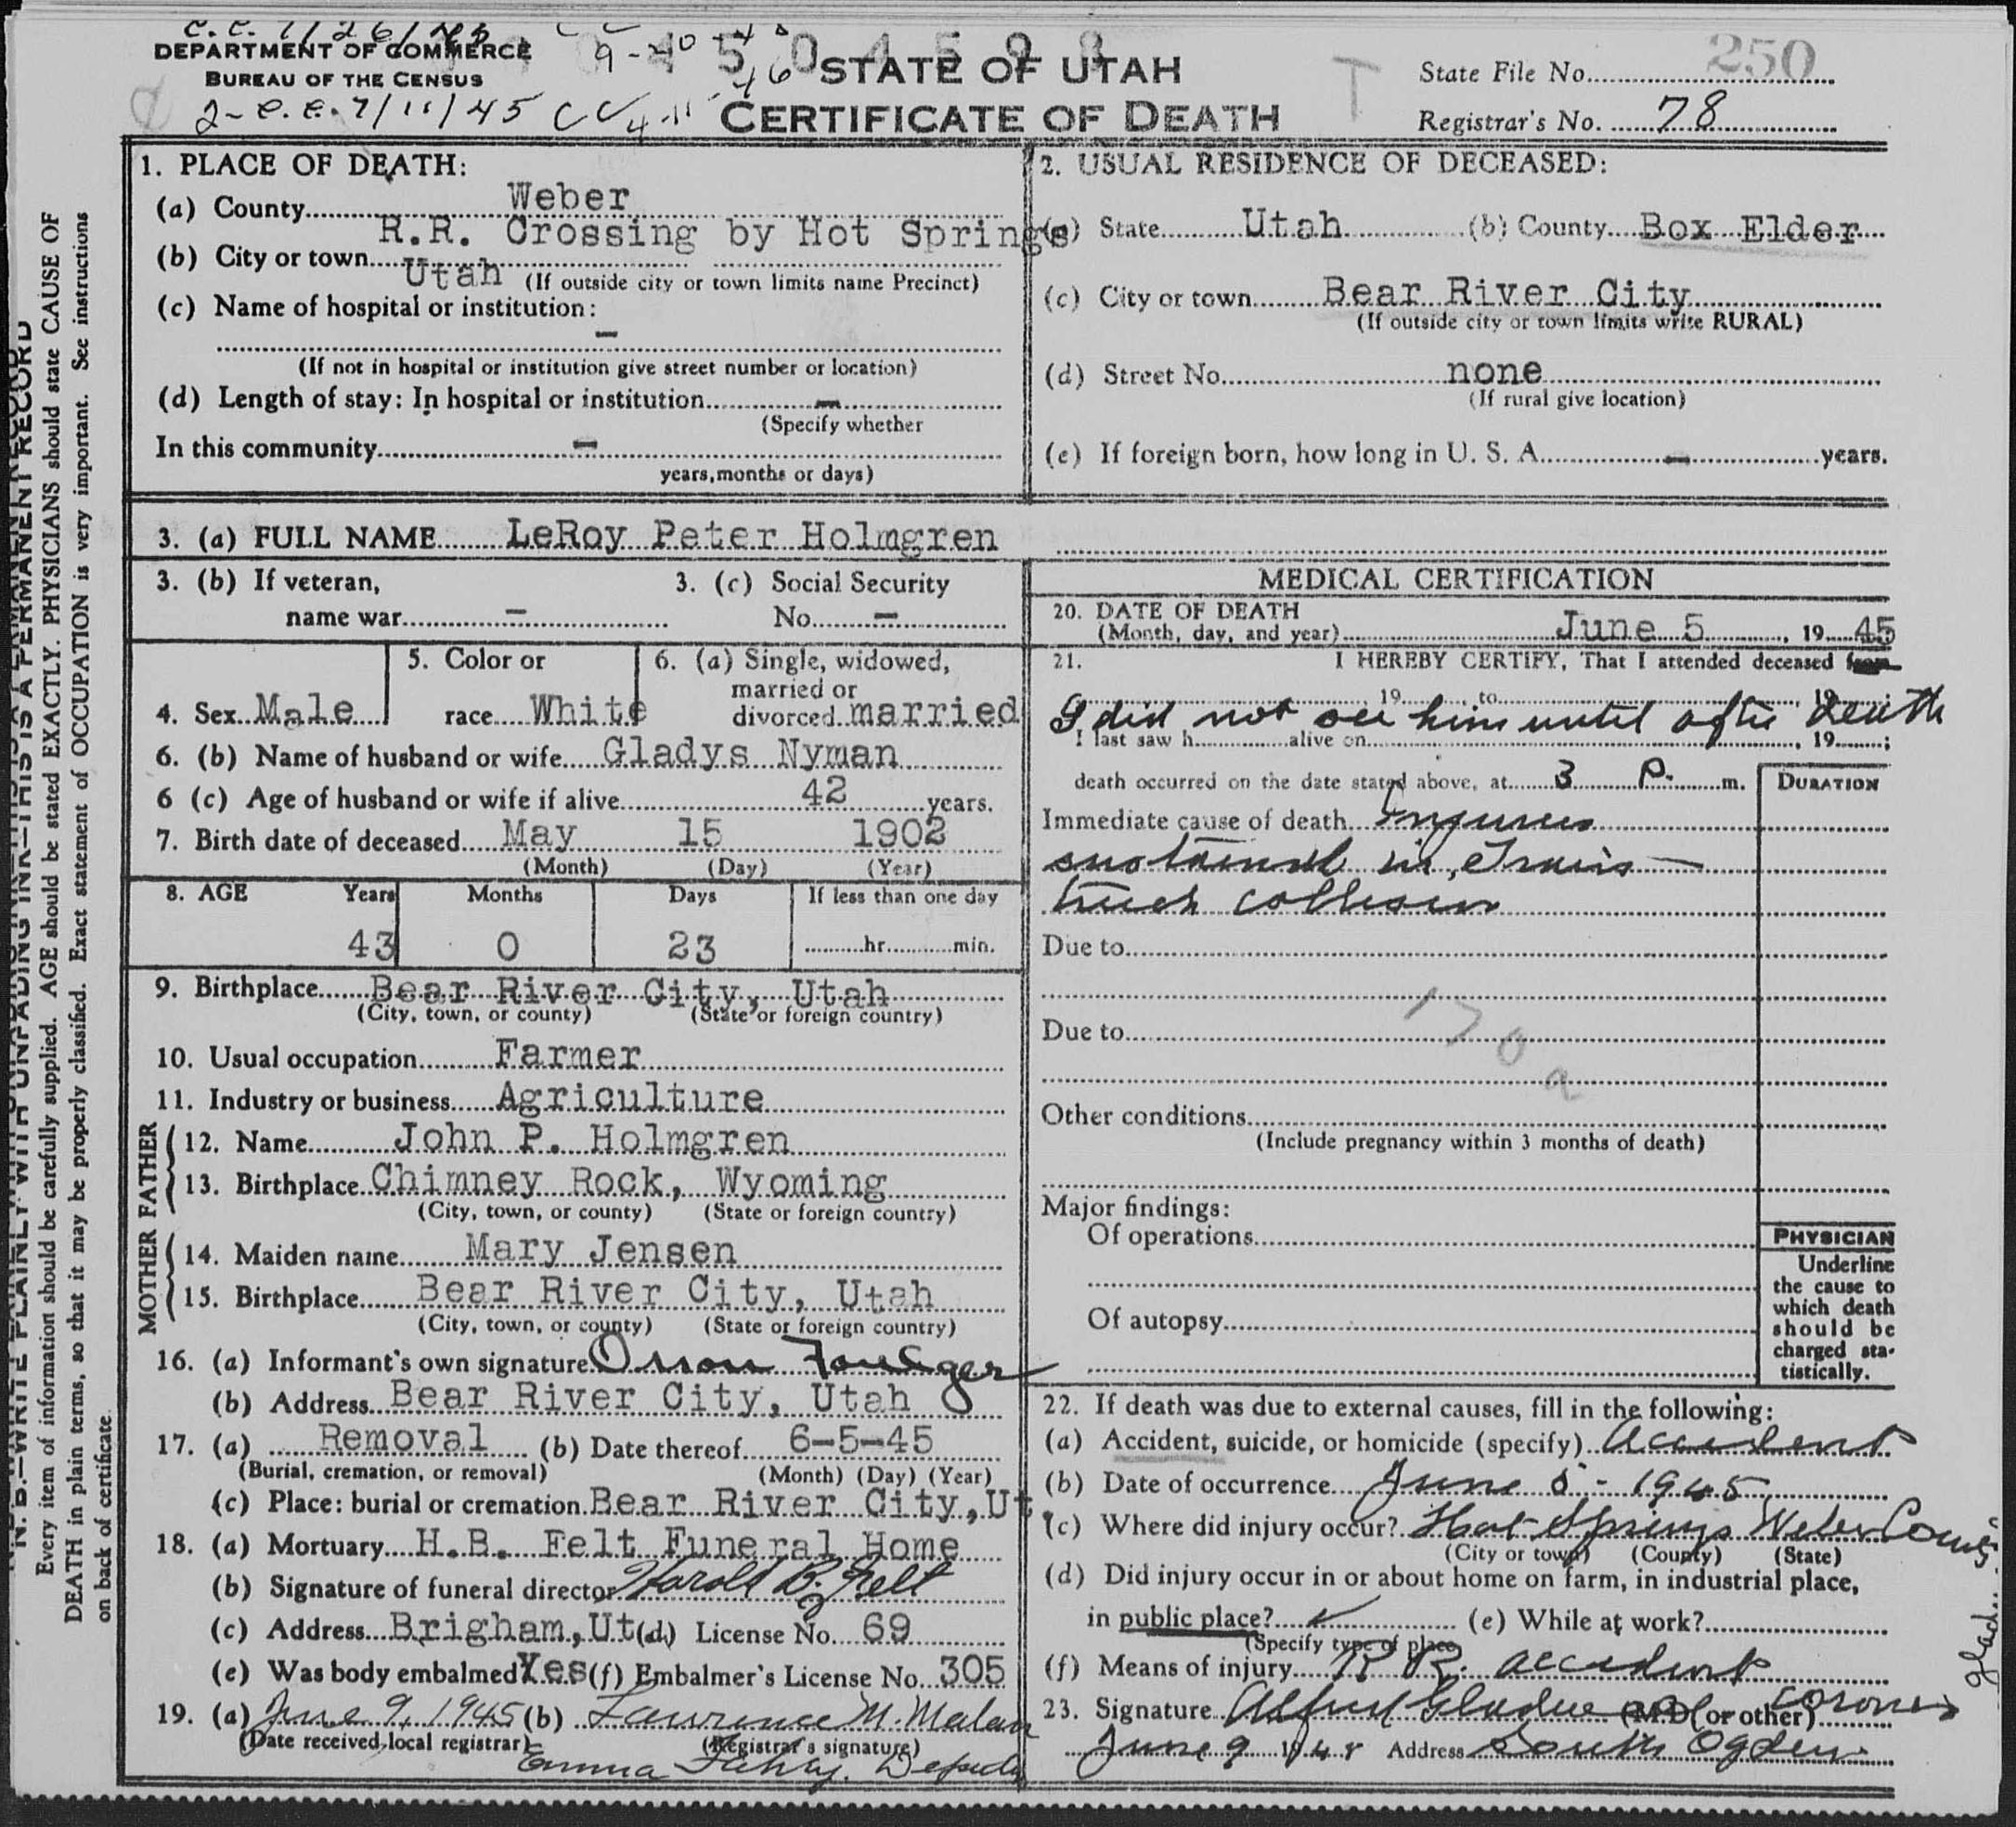 C.C. 7/26/45
DEPARTMENT OF COMMERCE
BUREAU OF THE CENSUS
2-C.C. 7/11/45
STATE OF UTAH
CERTIFICATE OF DEATH
State File No. 250
Registrar's No. 78
N. B.—WRITE PLAINLY WITH UNFADING INK—THIS IS A PERMANENT RECORD
Every item of information should be carefully supplied. AGE should be stated EXACTLY. PHYSICIANS should state CAUSE OF
DEATH in plain terms, so that it may be properly classified. Exact statement of OCCUPATION is very important. See instructions
on back of certificate.
1. PLACE OF DEATH:
(a) County Weber
R.R. Crossing by Hot Springs
(b) City or town Utah (If outside city or town limits name Precinct)
(c) Name of hospital or institution:
–
(If not in hospital or institution give street number or location)
(d) Length of stay: In hospital or institution –
(Specify whether
In this community –
years, months or days)
2. USUAL RESIDENCE OF DECEASED:
(a) State Utah (b) County Box Elder
(c) City or town Bear River City
(If outside city or town limits write RURAL)
(d) Street No. none
(If rural give location)
(e) If foreign born, how long in U. S. A. – years.
3. (a) FULL NAME LeRoy Peter Holmgren
3. (b) If veteran, 3. (c) Social Security
name war – No. –
4. Sex Male
5. Color or
race White
6. (a) Single, widowed,
married or
divorced married
6. (b) Name of husband or wife Gladys Nyman
6 (c) Age of husband or wife if alive 42 years.
7. Birth date of deceased May 15 1902
(Month) (Day) (Year)
8. AGE Years Months Days If less than one day
43 0 23 hr. min.
9. Birthplace Bear River City, Utah
(City, town, or county) (State or foreign country)
10. Usual occupation Farmer
11. Industry or business Agriculture
FATHER
12. Name John P. Holmgren
13. Birthplace Chimney Rock, Wyoming
(City, town, or county) (State or foreign country)
MOTHER
14. Maiden name Mary Jensen
15. Birthplace Bear River City, Utah
(City, town, or county) (State or foreign country)
16. (a) Informant's own signature
(b) Address Bear River City, Utah
17. (a) Removal (b) Date thereof 6-5-45
(Burial, cremation, or removal) (Month) (Day) (Year)
(c) Place: burial or cremation Bear River City, Ut
18. (a) Mortuary H.B. Felt Funeral Home
(b) Signature of funeral director Harold B. Felt
(c) Address Brigham, Ut (d) License No. 69
(e) Was body embalmed Yes (f) Embalmer's License No. 305
19. (a) June 9, 1945 (b) Lawrence M. Malan
(Date received local registrar) (Registrar's signature)
Emma Deputy
MEDICAL CERTIFICATION
20. DATE OF DEATH
(Month, day, and year) June 5, 19 45
21. I HEREBY CERTIFY, That I attended deceased from
19 to 19
I did not see him until after death
I last saw h alive on , 19 ;
death occurred on the date stated above, at 3 P. m.
DURATION
Immediate cause of death Injuries
sustained in train—
truck collision
Due to
Due to
170a
Other conditions
(Include pregnancy within 3 months of death)
Major findings:
Of operations
Of autopsy
PHYSICIAN
Underline
the cause to
which death
should be
charged sta-
tistically.
22. If death was due to external causes, fill in the following:
(a) Accident, suicide, or homicide (specify) Accident
(b) Date of occurrence June 5 - 1945
(c) Where did injury occur? Hot Springs Weber County
(City or town) (County) (State)
(d) Did injury occur in or about home on farm, in industrial place,
in public place? ✓ (e) While at work?
(Specify type of place)
(f) Means of injury R R. accident
23. Signature Alfred Gladwell (M.D. or other) coroner
June 9 1945 Address South Ogden